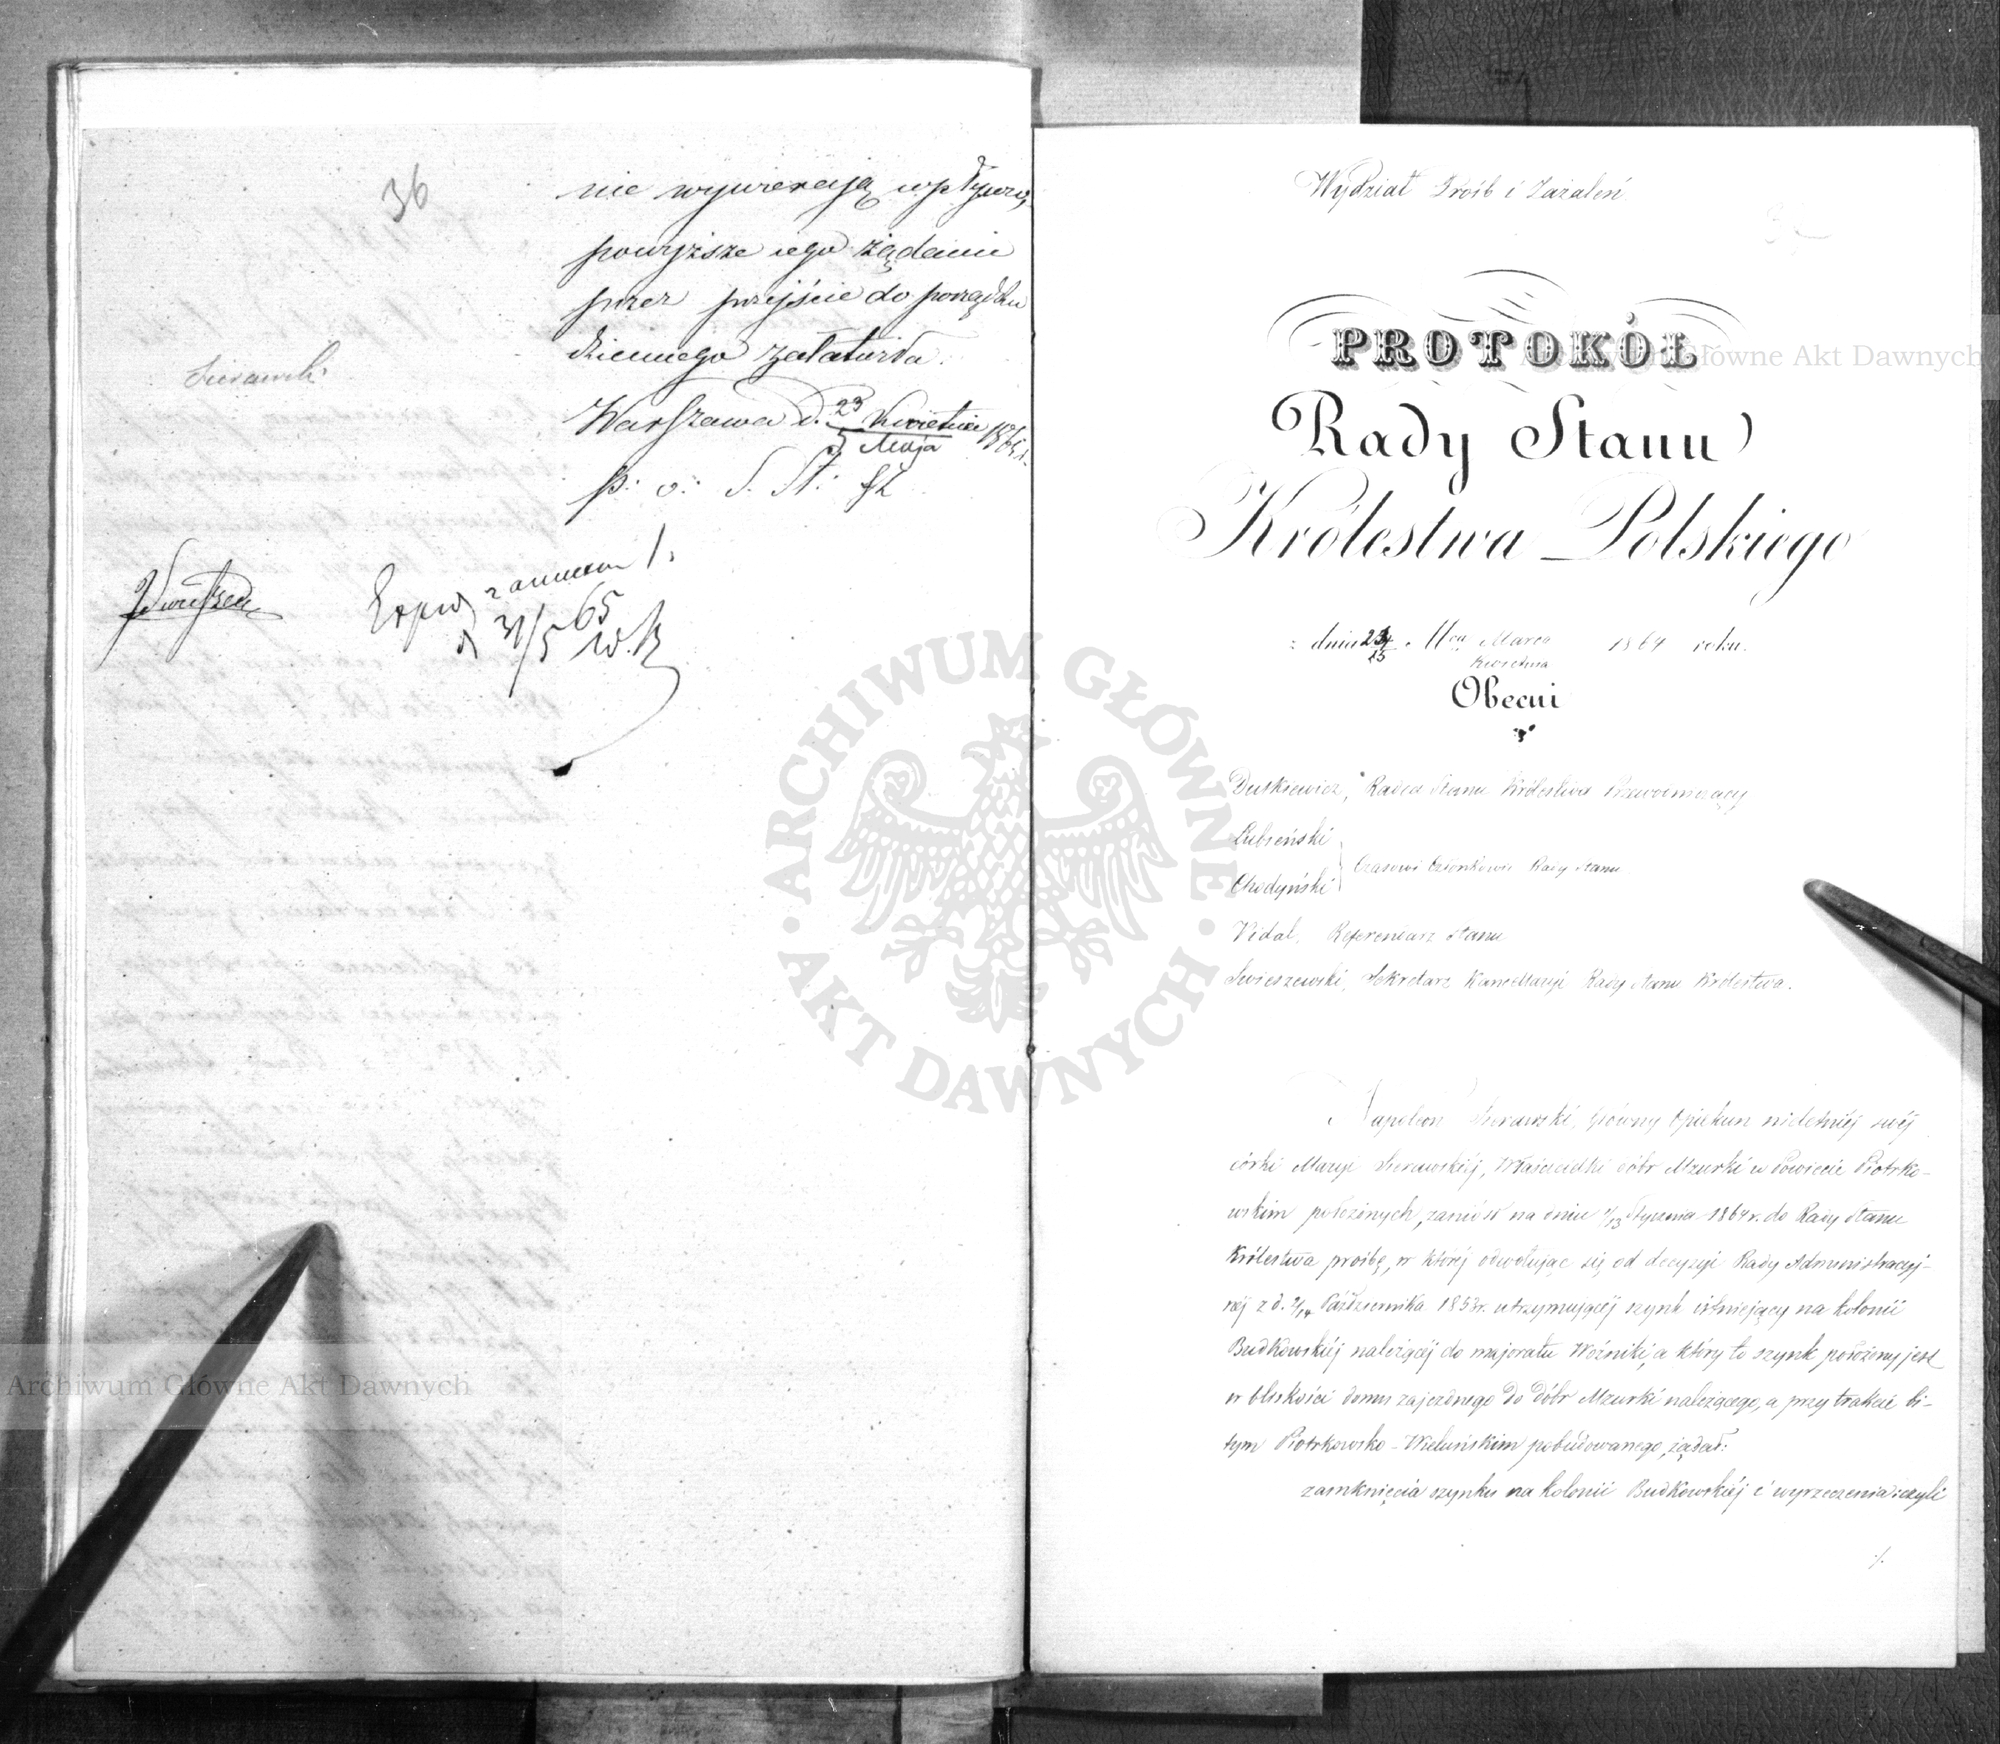 36
nie wywierają wpływu,
powyższe iego żądanie
przez przejście do porządku
dziennego załatwiła.
Sierawski
Warszawa d. 23 Kwietnia
5 Maja 1865 r.
p: o: S. St:
31/5 65
Wydział Próśb i Zażaleń
PROTOKÓŁ
Rady Stanu
Królestwa Polskiego
z dnia Marca
15 Kwietnia 1864 roku.
Obecni
Dutkiewicz, Radca Stanu Królestwa Przewodniczący
Łubieński
Czasowi Członkowie Rady Stanu
Chodyński
Vidal, Referendarz Stanu
Swieszewski, Sekretarz Kancellaryi Rady Stanu Królestwa.
Napoleon Sierawski, Główny Opiekun nieletniéj swéj
córki Maryi Sierawskiéj, Właścicielki dóbr Mzurki w Powiecie Piotrko-
wskim położonych, zaniósł na dniu 1/13 Stycznia 1864 r. do Rady Stanu
Królestwa prośbę, w któréj odwołując się od decyzyi Rady Administracyj-
néj z d. 2/14 Października 1853 r. utrzymującéj szynk istniejący na kolonii
Budkowskiéj należącéj do majoratu Woźniki, a który to szynk położony jest
w bliskości domu zajezdnego do dóbr Mzurki należącego, a przy trakcie bi-
tym Piotrkowsko-Wieluńskim pobudowanego, żądał:
zamknięcia szynku na kolonii Budkowskiéj i wyrzeczenia: czyli
./.
ARCHIWUM GŁÓWNE AKT DAWNYCH
Archiwum Główne Akt Dawnych
Archiwum Główne Akt Dawnych